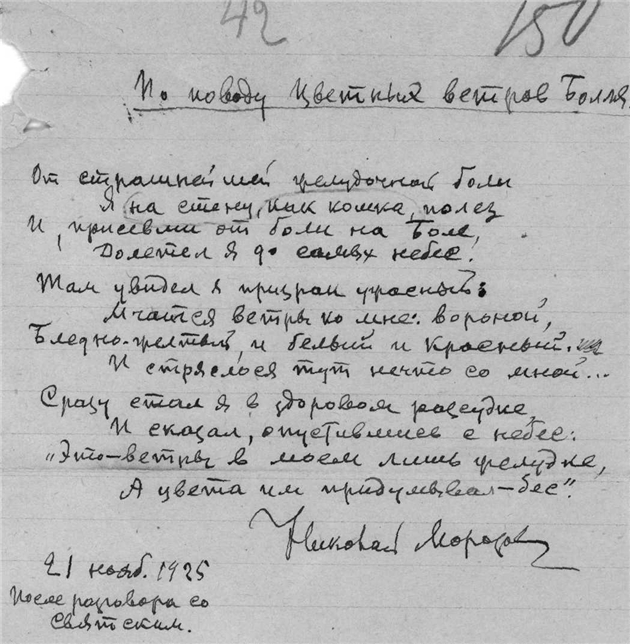 42
150
По поводу цветных ветров Болля.
От страшнейшей желудочной боли
Я на стену, как кошка, полез
И, присевши от боли на Боле,
Долетел я до самых небес.
Там увидел я призрак ужасный:
Мчатся ветры ко мне: вороной,
Бледно-желтый, и белый и красный.
И стряслося тут нечто со мной...
Сразу стал я в здоровом рассудке,
И сказал, опустившись с небес:
„Это-ветры в моем лишь желудке,
А цвета им придумывал-бес".
Николай Морозов
21 нояб. 1925
После разговора со
Святским.